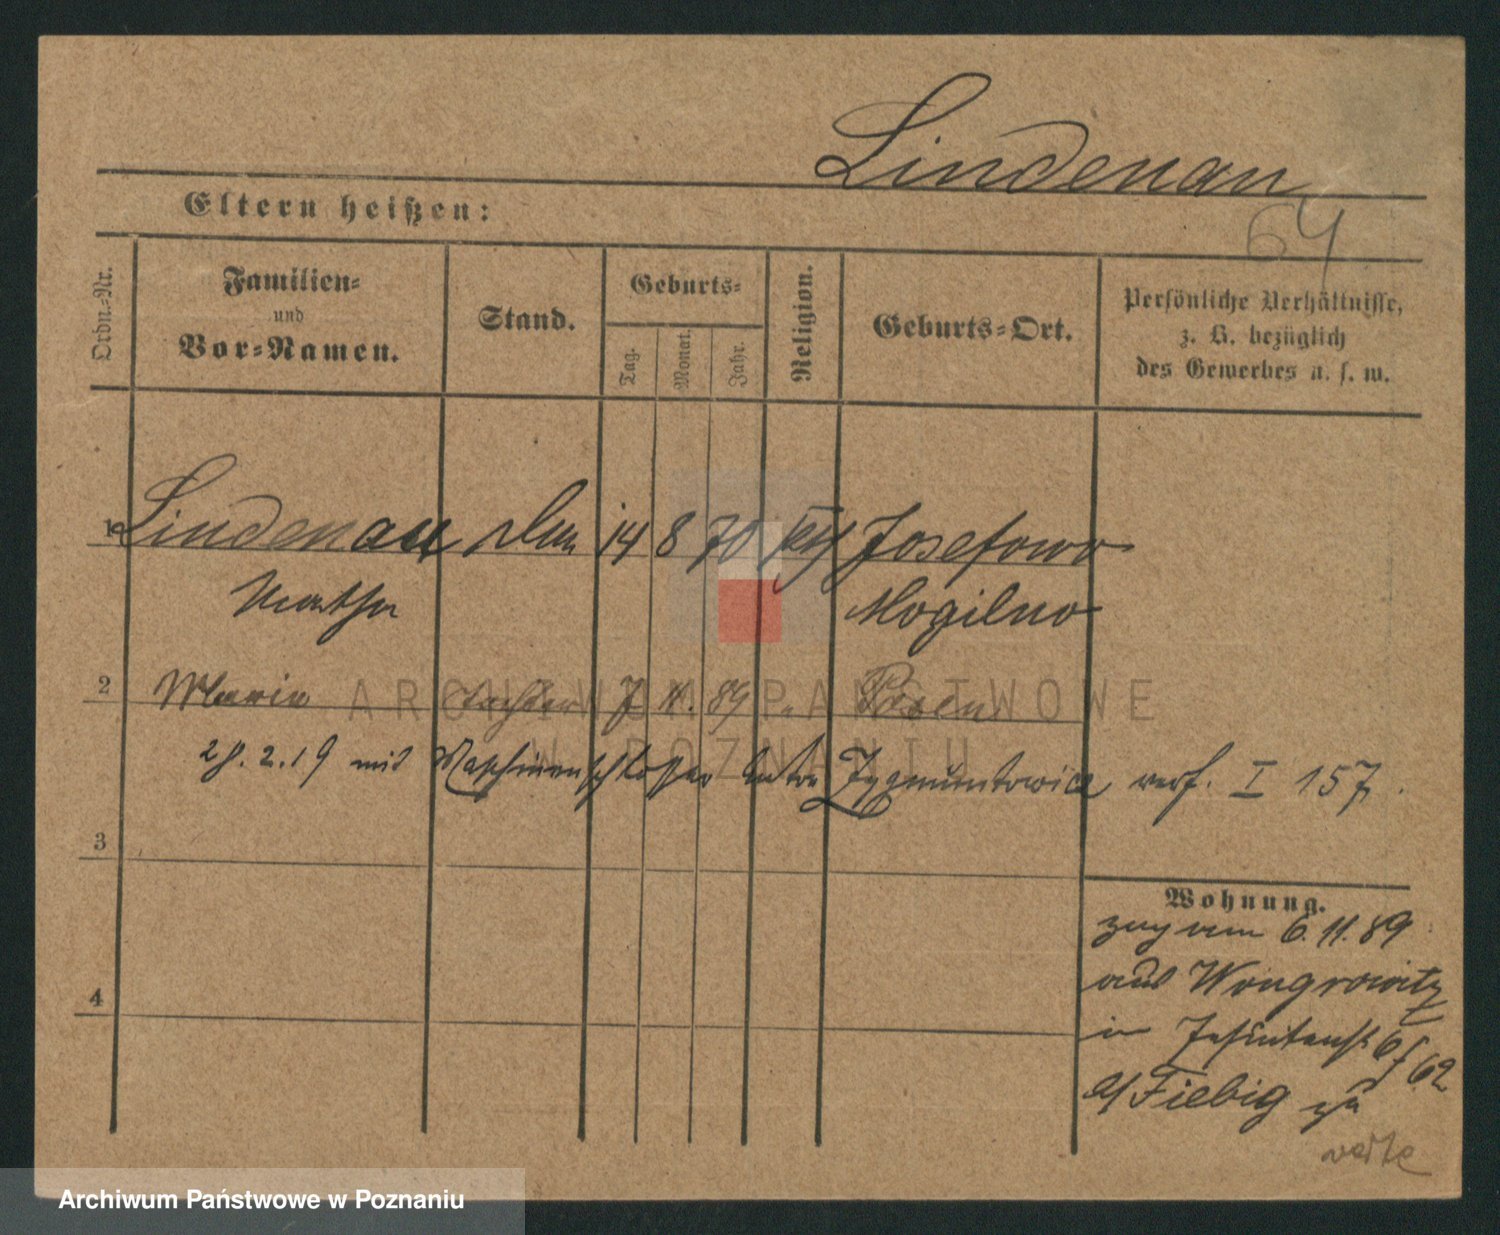 Lindenau
64
Eltern heißen:
Ordn.-Nr.
Familien-
und
Vor-Namen.
Stand.
Geburts-
Tag.
Monat.
Jahr.
Religion.
Geburts-Ort.
Persönliche Verhältnisse,
z. B. bezüglich
des Gewerbes u. s. w.
1 Lindenau 14 8 70 Josefowo
Martha Mogilno
2 Maria Tochter 7 11. 89 Posen
ARCHIWUM PAŃSTWOWE
W POZNANIU
28. 2. 19 mit Maschinenschlosser Zygmuntowicz verh. I 157.
3
Wohnung.
6. 11. 89
aus Wongrowitz
4
in Jesuitenst 6/62
Fiebig
Archiwum Państwowe w Poznaniu